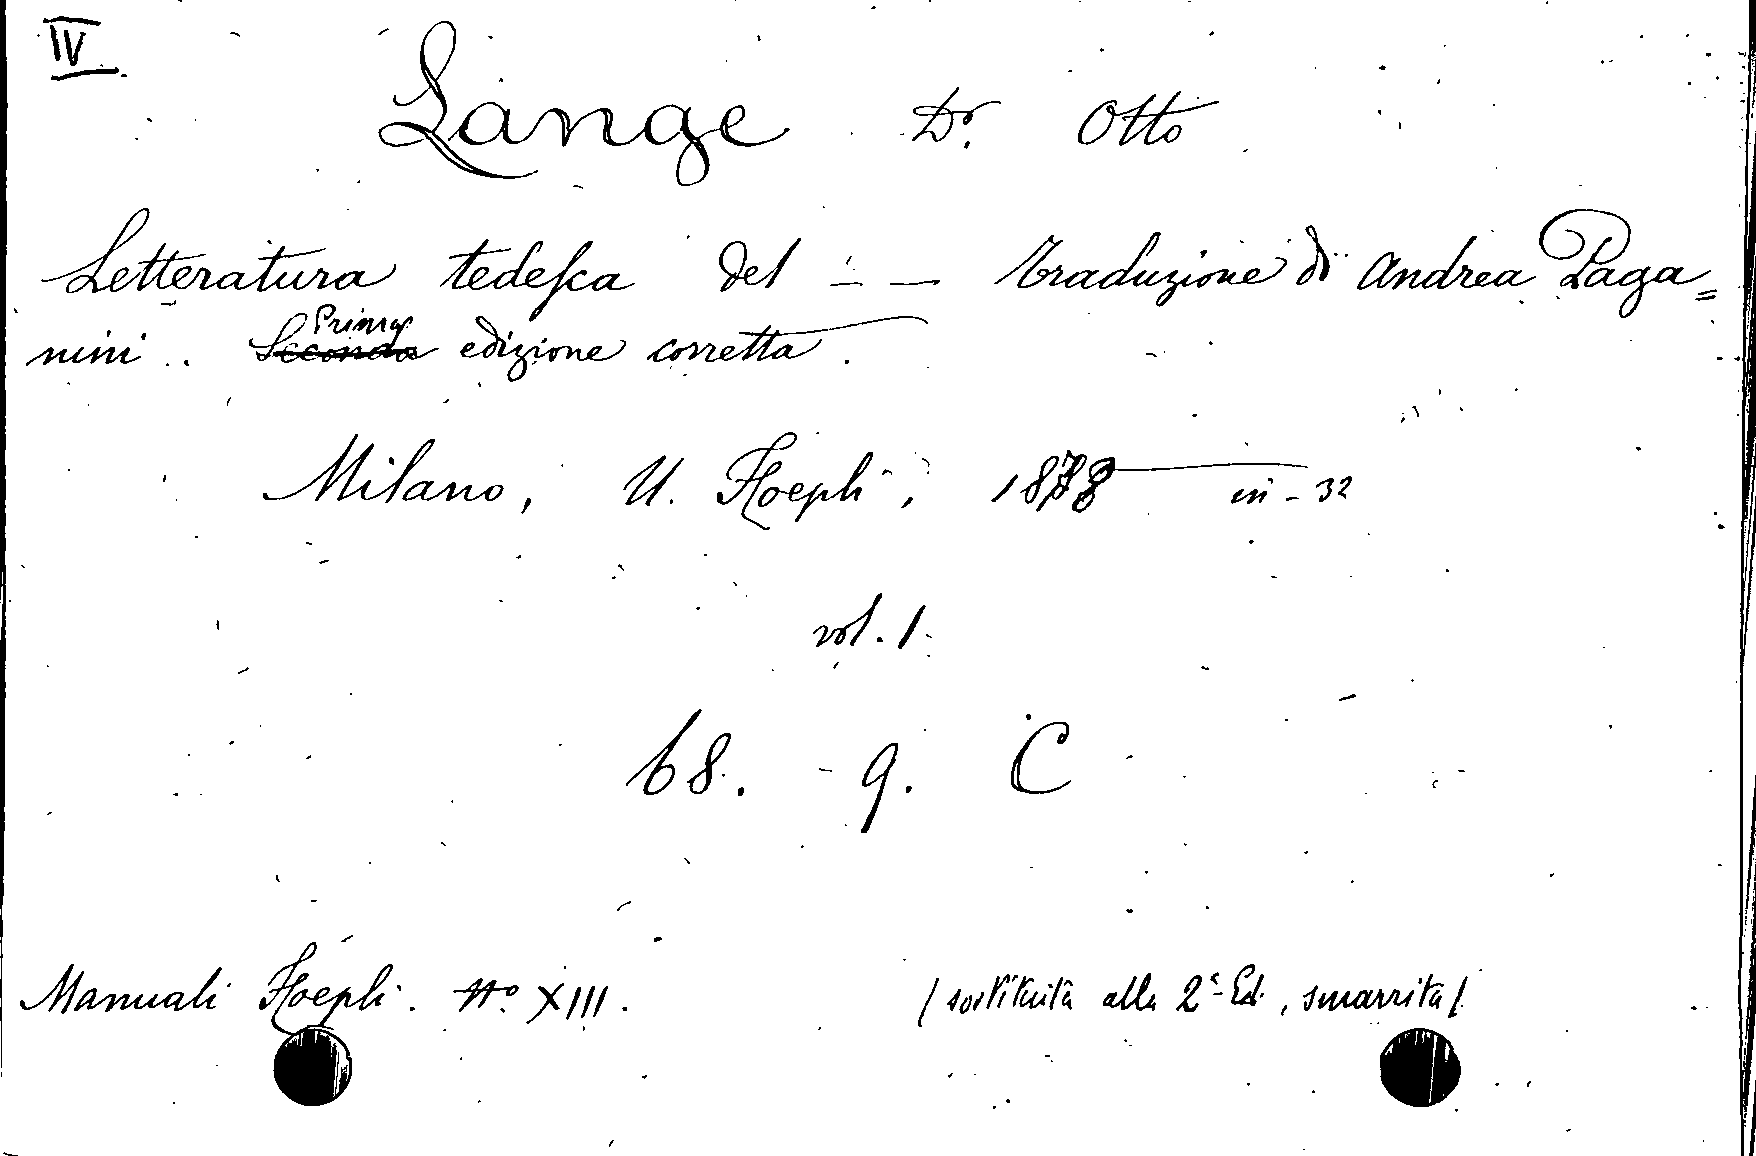 IV
Lange Dr. Otto
Letteratura tedesca del — — traduzione di Andrea Paga=
nini. Seconda Prima edizione corretta.
Milano, U. Hoepli, in-32
vol. 1.
68. - 9. C
Manuali Hoepli. No. XIII. (sostituita alla 2ª Ed., smarrita)